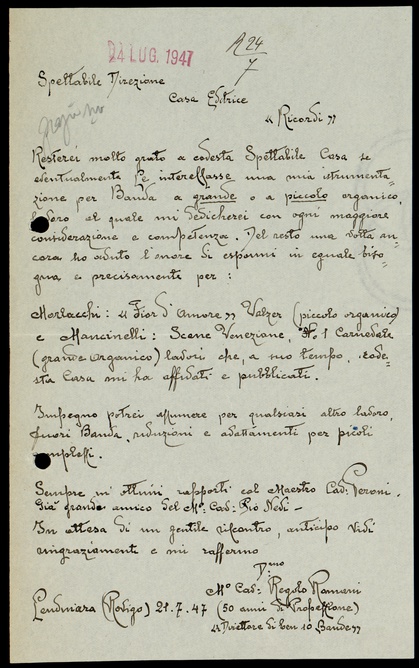 24 LUG. 1947
R 24/7
Spettabile Direzione
Casa Editrice
"Ricordi"
grazie no
Resterei molto grato a codesta Spettabile Casa se
eventualmente Le interessasse una mia strumenta-
zione per Banda a grande o a piccolo organico,
lavoro al quale mi dedicherei con ogni maggiore
considerazione e competenza. Del resto una volta an-
cora ho avuto l'onore di espormi in eguale biso-
gna e precisamente per:
Morlacchi: "Fior d'Amore" Valzer (piccolo organico)
e Mancinelli: Scene Veneziane, No. 1 Carnevale
(grande organico) lavori che, a suo tempo, code-
sta Casa mi ha affidati e pubblicati.
Impegno potrei assumere per qualsiasi altro lavoro,
fuori Banda, riduzioni e adattamenti per picoli
complessi.
Sempre in ottimi rapporti col Maestro Cav. Peroni.
Già grande amico del Mo. Cav. Pio Nedi -
In attesa di un gentile riscontro, anticipo vivi
ringraziamenti e mi raffermo
D.mo
Mo Cav. Regolo Romani
Lendinara (Rovigo) 21.7.47 (50 anni di Professione)
"Direttore di ben 10 Bande"